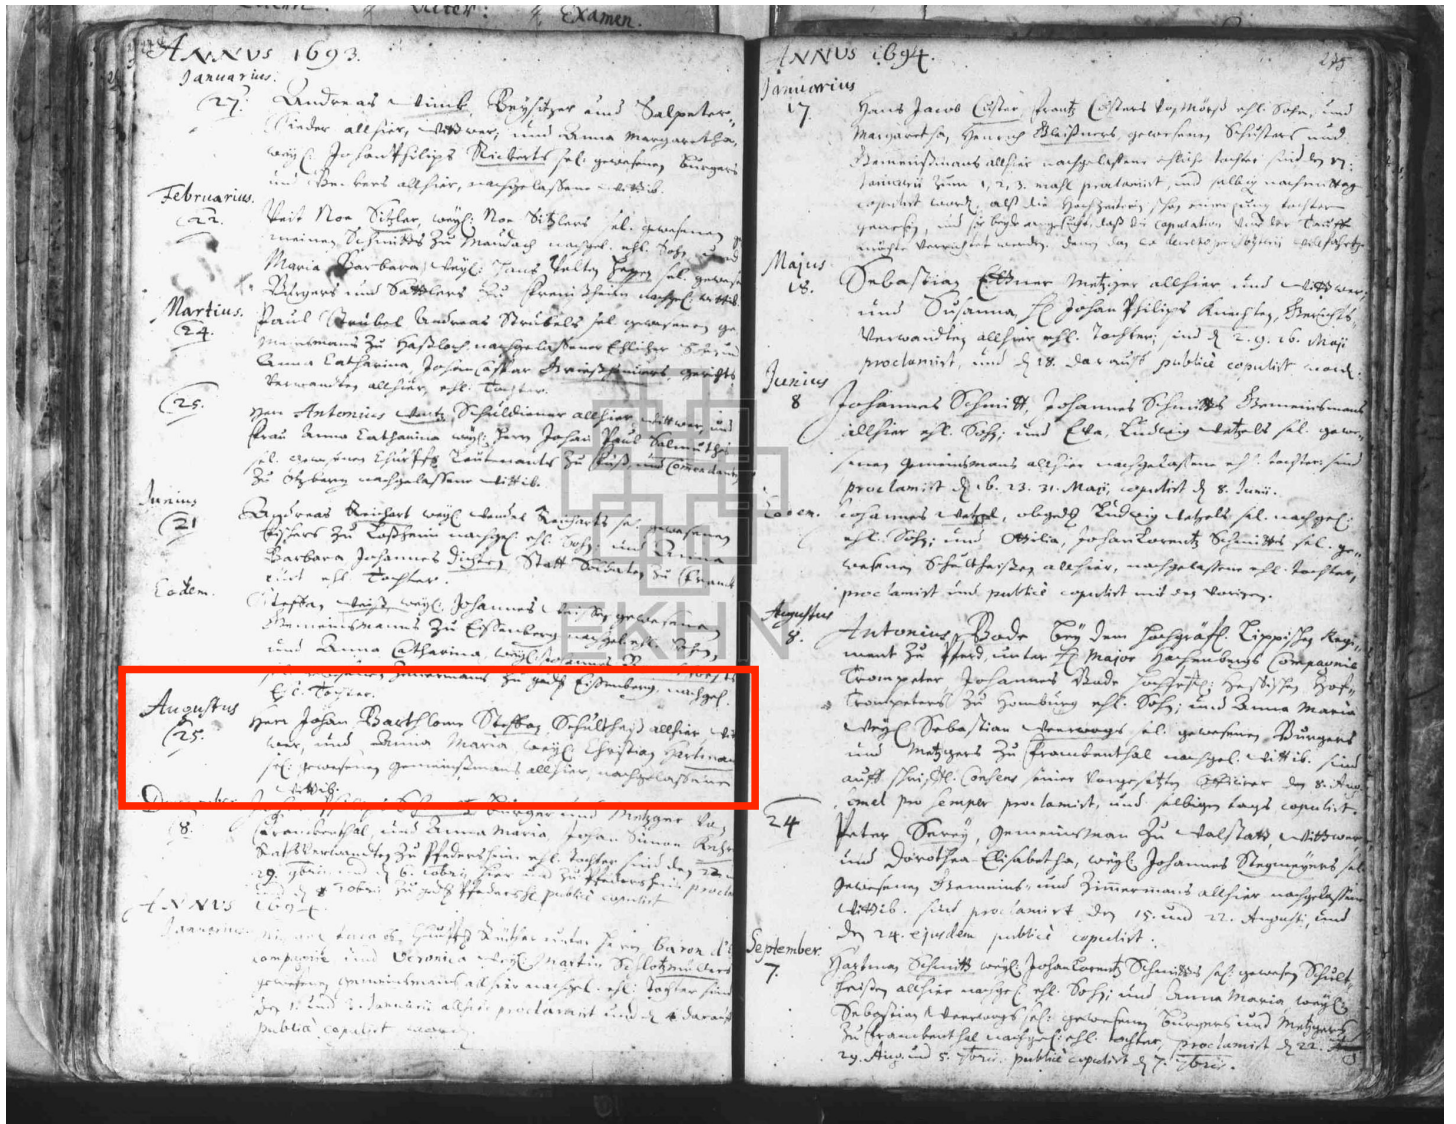 Examen.
ANNVS 1693.
Januarius.
27. Andreas Beysitzer und Salpeter-
Sieder allhier, Wittwer, und Anna Margaretha,
weyl. Johan Philips Rieberts sel. gewesenen Burgers
und Beckers allhier, nachgelassene Wittib.
Februarius.
22. Veit Noe Sitzler, weyl. Noe Sitzlers sel. gewesenen
meinen Schmitts zu Maudach nachgel. ehl. Sohn, und
Maria Barbara, weyl. Hans Velten sel. gewese
Burgers und Sattlers zu nachgel. Wittib
Martius.
24. Paul Strubel Andreas Strubels sel. gewesenen ge
meinsmans zu Haßloch nachgelassener Ehlicher Sohn, und
Anna Catharina, Johan Caspar gerichts
Verwandten allhier, ehl. Tochter.
25. Herr Antonius Schuldiener allhier, Wittwer, und
Frau Anna Catharina weyl. Herrn Johan Paul Salmuths
sel. gewesenen Leutenants zu Fuß und Comendanten
zu Otzberg nachgelassene Wittib.
Junius
21 Andreas Reichart weyl. Wendel Reicharts sel. gewesenen
zu nachgel. ehl. Sohn; und Anna
Barbara Johannes Statt Soldaten zu Franck
ehl. Tochter.
Eodem. Steffan weyl. Johannes gewesenen
Gemeinsmanns zu Eissenberg nachgel. ehl. Sohn,
und Anna Catharina, weyl. Johannes
zu Eissenberg, nachgel.
Ehl. Tochter.
Augustus
25. Herr Johan Barthlome Steffan Schultheiß allhier Wit
wer, und Anna Maria, weyl. Christian Hartman
sel. gewesenen gemeinsmans allhier, nachgelassene
Wittib.
December
8. Burger und Metzger von
Franckenthal, und Anna Maria, Johan Simon
Rathsverwandten zu Pfedersheim ehl. Tochter sind den 22
29. 9bris und d. 6. Xbris hier und zu Pfedersheim procla
publicè copulirt
ANNVS 1694.
Januarius.
unter Herrn Baron
compagnie und Veronica weyl. Martin Schlotzmüllers
gewesenen gemeinsmans allhier nachgel. ehl. Tochter sind
den 1. und 2. Januarii allhier proclamirt und d. 4 darauff
publicè copulirt worden.
ANNUS 1694.
215
Januarius
17. Hans Jacob Cöster, Frantz Cösters von Mörß ehl. Sohn, und
Margaretha, Henrich Gleißners gewesenen Schusters und
Gemeinsmans allhier nachgelassene ehliche Tochter sind den 17.
Januarii zum 1, 2, 3. mahl proclamirt, und selbig nachmittag
copulirt word. alß die Hochzeiterin schon einer jung Tochter
genesen, und sie beyde angesucht, daß die copulation und der Tauff
möchte verrichtet werden.
Majus
18. Sebastian Ebner Metzger allhier und Wittwer,
und Susanna, H. Johan Philips Knechten, Gerichts-
Verwandten allhier ehl. Tochter; sind d. 2. 9. 16. Maji
proclamirt, und d. 18. darauff publicè copulirt word.
Junius
8 Johannes Schmitt, Johannes Schmitts Gemeinsmans
allhier ehl. Sohn; und Eva, Ludwig Wetzels sel. gewe-
senen Gemeinsmans allhier nachgelassene ehl. Tochter, sind
proclamirt d. 16. 23. 31. Maij, copulirt d. 8. Junii.
Eodem. Johannes Wetzel, obged. Ludwig Wetzels sel. nachgel.
ehl. Sohn; und Ottilia, Johan Lorentz Schmitts sel. ge-
wesenen Schultheißen allhier, nachgelassene ehl. Tochter,
proclamirt und publicè copulirt mit den Vorigen.
Augustus
8. Antonius Bode bey dem Hochgräfl. Lippischen Regi-
ment zu Pferd, unter H. Major Hachenbergs Compagnie
Trompeter Johannes Bode Hochfürstl. Hessischen Hof-
Trompeters zu Homburg ehl. Sohn; und Anna Maria
weyl. Sebastian sel. gewesenen Burgers
und Metzgers zu Franckenthal nachgel. Wittib. sind
auff schrifftl. Consens seiner Vorgesetzten Officirer den 8. Aug.
semel pro semper proclamirt, und selbigen tags copulirt.
24 Peter Serey, Gemeinsman zu Walstatt, Wittwer,
und Dorothea Elisabetha, weyl. Johannes Stegmeyers sel.
gewesenen Gemeins- und Zimmermans allhier nachgelassene
Wittib. sind proclamirt den 15. und 22. Augusti, und
den 24. ejusdem publicè copulirt.
September
7. Hartman Schmitt weyl. Johan Lorentz Schmitts sel. gewesen Schult
heissen allhier nachgel. ehl. Sohn; und Anna Maria weyl.
Sebastian sel. gewesenen Burgers und Metzgers
zu Franckenthal nachgel. ehl. Tochter, proclamirt d. 22.
29. Aug. und 5. 7bris. publicè copulirt d. 7. 7bris.
EKHN